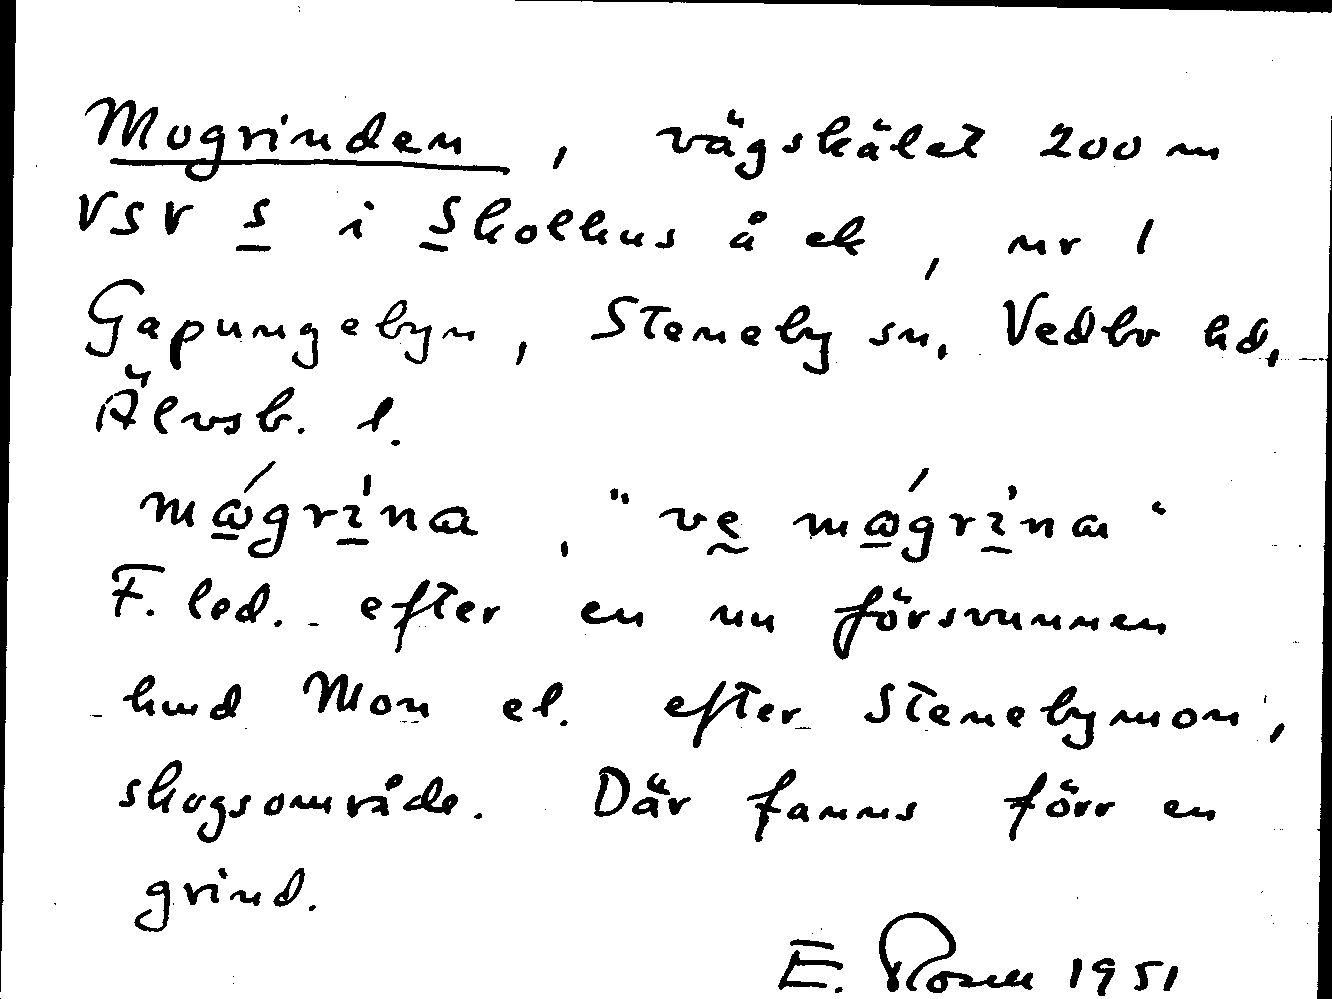 Mogrinden, vägskälet 200 m
VSV s i Skolhus å ek, nr 1
Gapungebyn, Steneby sn, Vedbo hd,
Älvsb. l.
mǿgrína, "ve mǿgrína"
F. led. efter en nu försvunnen
hmd Mon el. efter Stenebymon,
skogsområde. Där fanns förr en
grind.
E. Rosell 1951